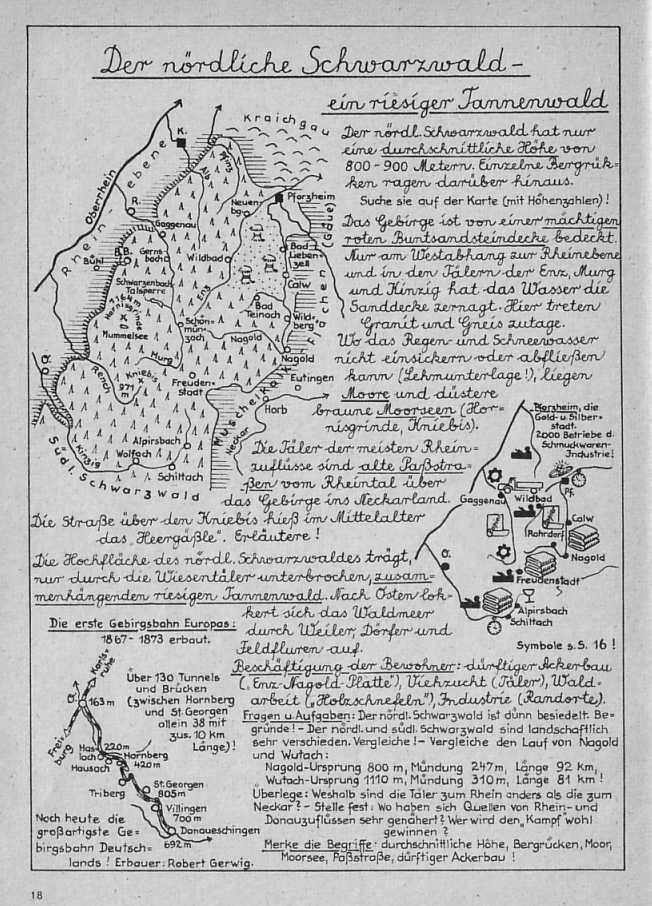 Der nördliche Schwarzwald –
ein riesiger Tannenwald
Der nördl. Schwarzwald hat nur
eine durchschnittliche Höhe von
800 - 900 Metern. Einzelne Bergrük=
ken ragen darüber hinaus.
Suche sie auf der Karte (mit Höhenzahlen)!
Das Gebirge ist von einer mächtigen
roten Buntsandsteindecke bedeckt.
Nur am Westabhang zur Rheinebene
und in den Tälern der Enz, Murg
und Kinzig hat das Wasser die
Sanddecke zernagt. Hier treten
Granit und Gneis zutage.
Wo das Regen- und Schneewasser
nicht einsickern oder abfließen
kann (Lehmunterlage!), liegen
Moore und düstere
braune Moorseen (Hor=
nisgrinde, Kniebis).
Die Täler der meisten Rhein=
zuflüsse sind alte Paßstra=
ßen vom Rheintal über
das Gebirge ins Neckarland.
Die Straße über den Kniebis hieß im Mittelalter
das „Heergäßle“. Erläutere!
Die Hochfläche des nördl. Schwarzwaldes trägt,
nur durch die Wiesentäler unterbrochen, zusam=
menhängenden riesigen Tannenwald. Nach Osten lok=
kert sich das Waldmeer
durch Weiler, Dörfer und
Feldfluren auf.
Kraichgau
K.
Oberrhein
Rhein - ebene
Alb
Pfinz
R.
Gaggenau
Neuen-
bg.
Pforzheim
Bühl
B.B.
Gerns
bach
Wildbad
Bad
Lieben-
zell
Schwarzenbach
Talsperre
Enz
Calw
1164 m
Hornisgrinde
Mummelsee
Bad
Teinach
Wild-
berg
Schön-
mün-
zach
Nagold
Nagold
Murg
O.
Rench
Kniebis
971
m
Freuden-
stadt
Eutingen
Horb
Muschelkalk
Flächen
(Gäue)
Neckar
Alpirsbach
Wolfach
Kinzig
Schiltach
Südl. Schwarzwald
Pforzheim, die
Gold- u. Silber-
stadt.
2000 Betriebe d.
Schmuckwaren-
Industrie!
Pf.
Gaggenau
Wildbad
Calw
Rohrdorf
Nagold
O.
Freudenstadt
Alpirsbach
Schiltach
Symbole s. S. 16 !
Die erste Gebirgsbahn Europas:
1867 - 1873 erbaut.
Über 130 Tunnels
und Brücken
(zwischen Hornberg
und St. Georgen
allein 38 mit
zus. 10 km
Länge)!
Karls-
ruhe
O.
163 m
Frei-
burg
Has-
lach
220 m
Hausach
Hornberg
420 m
Triberg
St. Georgen
805 m
Villingen
700 m
Donaueschingen
692 m
Noch heute die
großartigste Ge=
birgsbahn Deutsch=
lands! Erbauer: Robert Gerwig.
Beschäftigung der Bewohner: dürftiger Ackerbau
(„Enz-Nagold-Platte“), Viehzucht (Täler), Wald=
arbeit („Holzschnefeln“), Industrie (Randorte).
Fragen u. Aufgaben: Der nördl. Schwarzwald ist dünn besiedelt. Be=
gründe! – Der nördl. und südl. Schwarzwald sind landschaftlich
sehr verschieden. Vergleiche! – Vergleiche den Lauf von Nagold
und Wutach:
Nagold-Ursprung 800 m, Mündung 247 m, Länge 92 km,
Wutach-Ursprung 1110 m, Mündung 310 m, Länge 81 km !
Überlege: Weshalb sind die Täler zum Rhein anders als die zum
Neckar? – Stelle fest: Wo haben sich Quellen von Rhein- und
Donauzuflüssen sehr genähert? Wer wird den „Kampf“ wohl
gewinnen ?
Merke die Begriffe: durchschnittliche Höhe, Bergrücken, Moor,
Moorsee, Paßstraße, dürftiger Ackerbau !
18